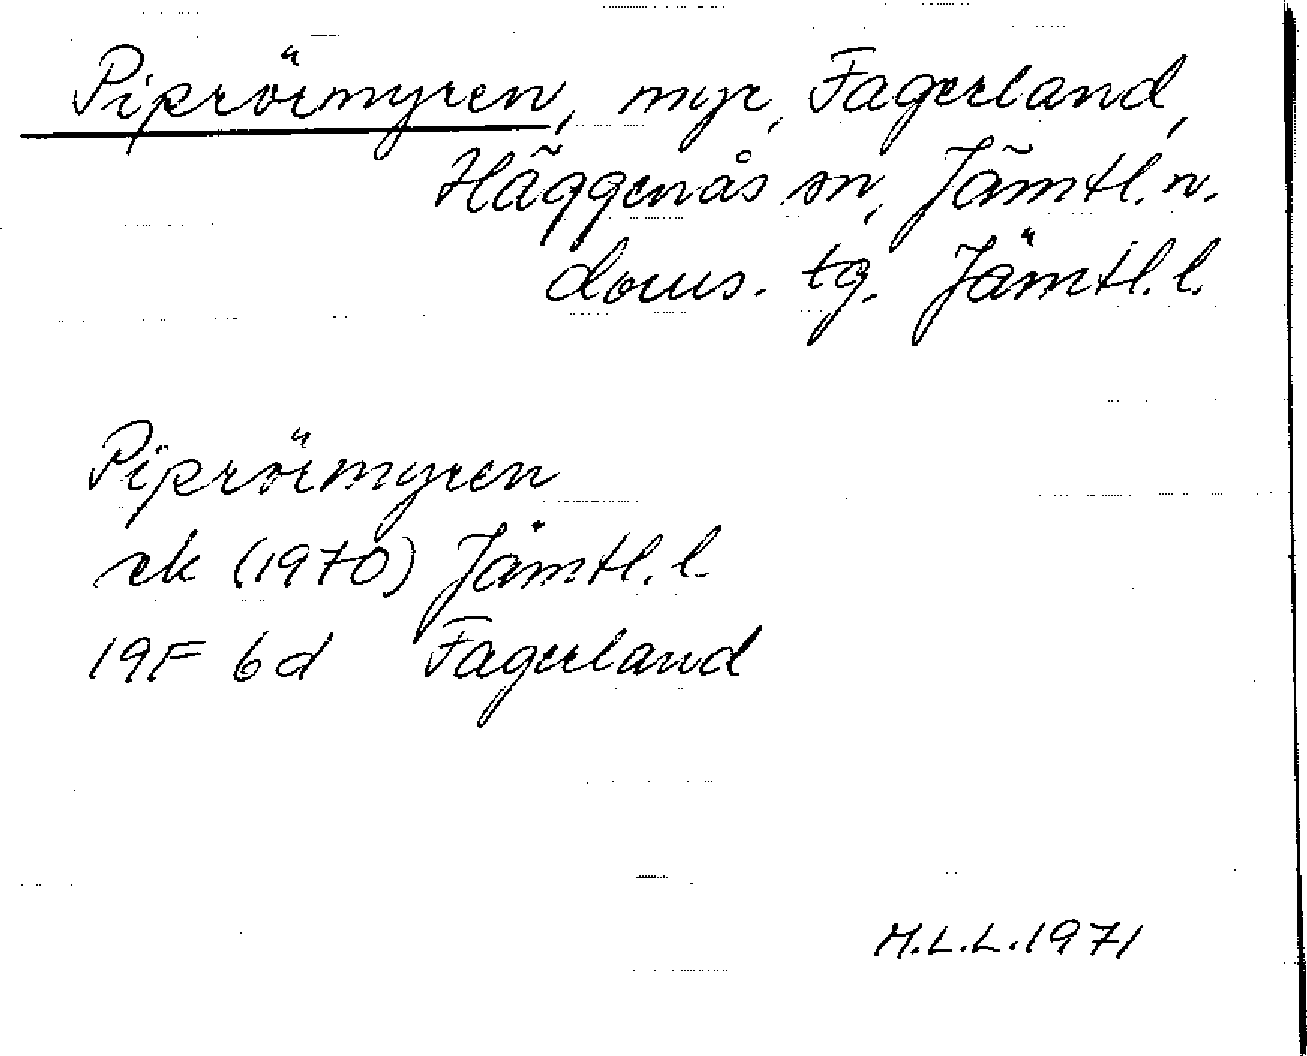 Piprörmyren, myr, Fagerland,
Häggenås sn, Jämtl. n.
doms. tg. Jämtl. l.
Piprörmyren
ek (1970) Jämtl. l.
19F 6d Fagerland
M.L.L. 1971